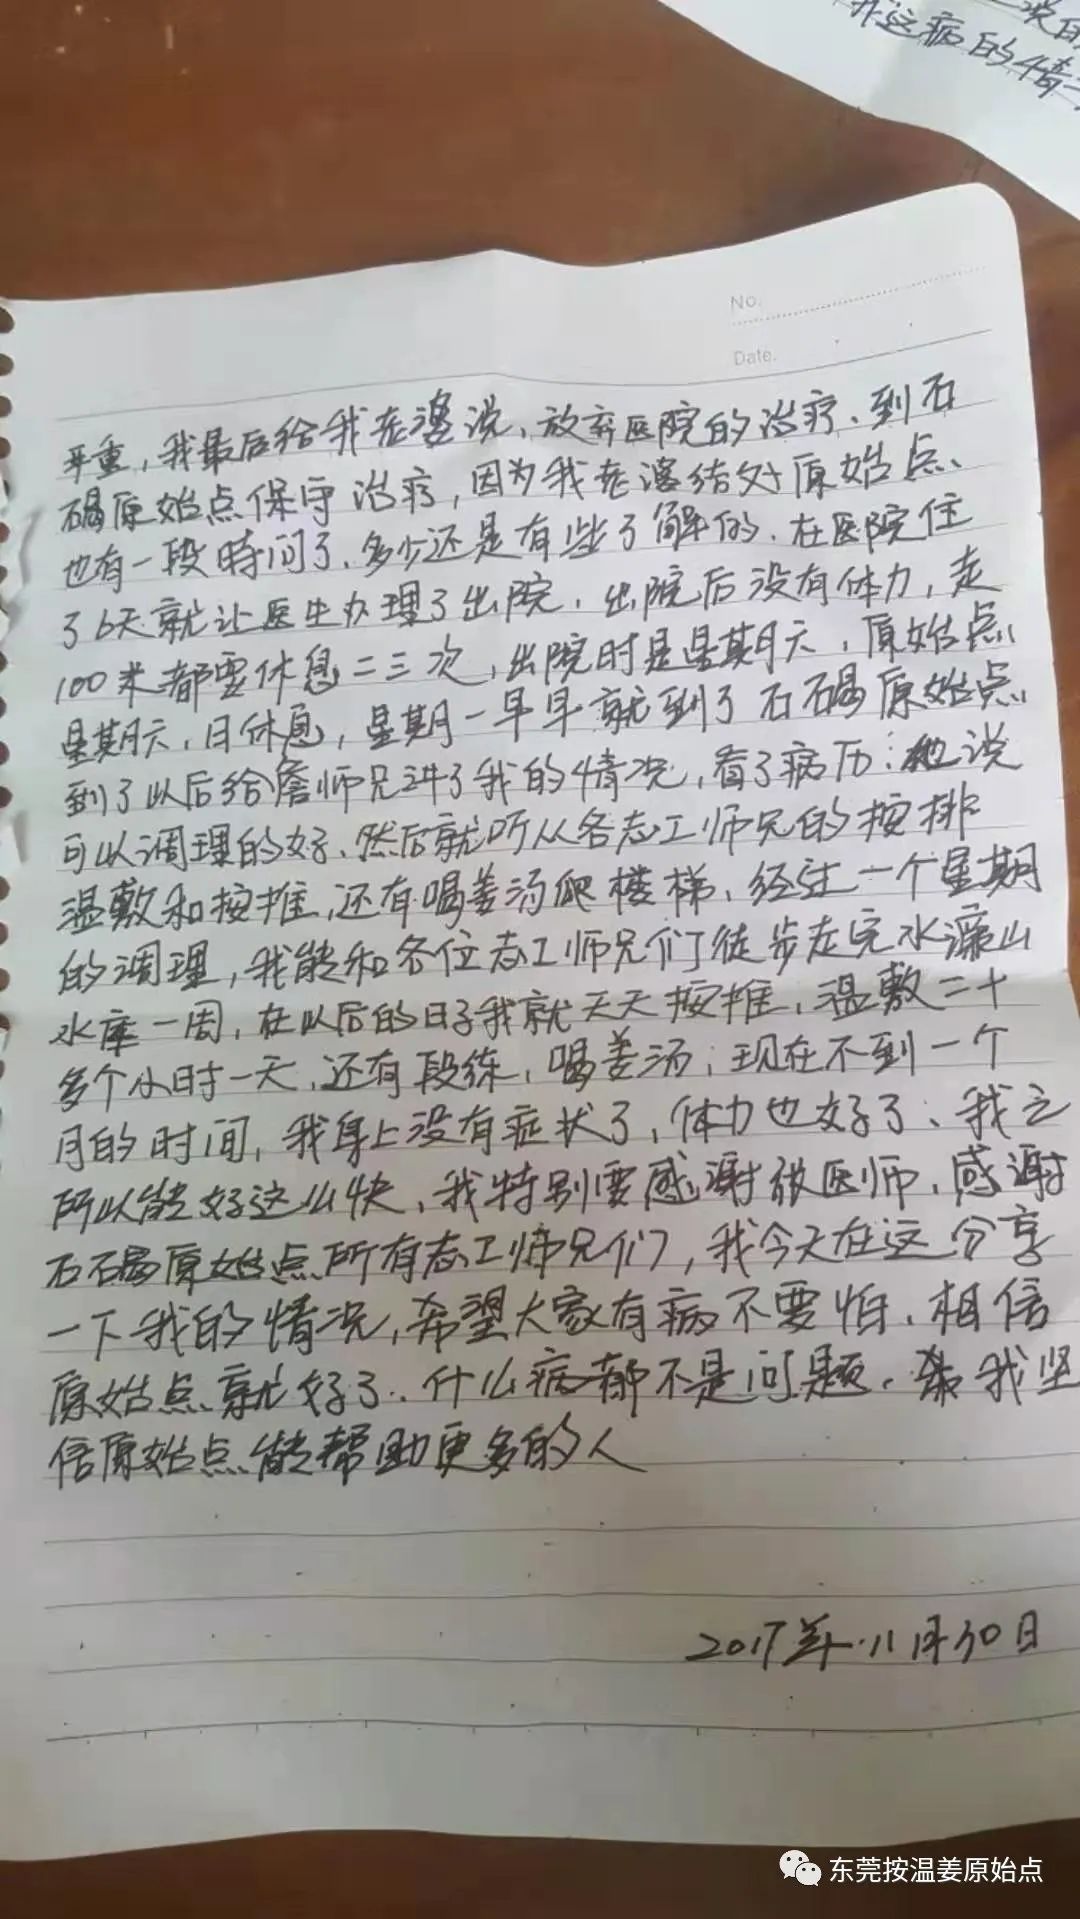 我这病的情
No.
Date.
严重，我最后给我老婆说，放弃医院的治疗、到石
碣原始点保守治疗，因为我老婆结处原始点、
也有一段時间了、多少还是有些了解的、在医院住
了6天就让医生办理了出院，出院后没有体力，走
100米都要休息二三次，出院时是星期六，原始点
星期六，日休息，星期一早早就到了石碣原始点
到了以后给詹师兄讲了我的情况，看了病历：他说
可以调理的好、然后就听从各志工师兄的按排
温敷和按推，还有喝姜汤爬楼梯、经过一个星期
的调理，我能和各位志工师兄们徒步走完水濂山
水库一周，在以后的日子我就天天按推，温敷二十
多个小时一天，还有段练，喝姜汤；现在不到一个
月的时间，我身上没有症状了，体力也好了、我之
所以能好这么快、我特别要感谢张医师、感谢
石碣原始点所有志工师兄们，我今天在这分享
一下我的情况，希望大家有病不要怕、相信
原始点就好了、什么病都不是问题、我坚
信原始点能帮助更多的人
2017年·11月30日
东莞按温姜原始点